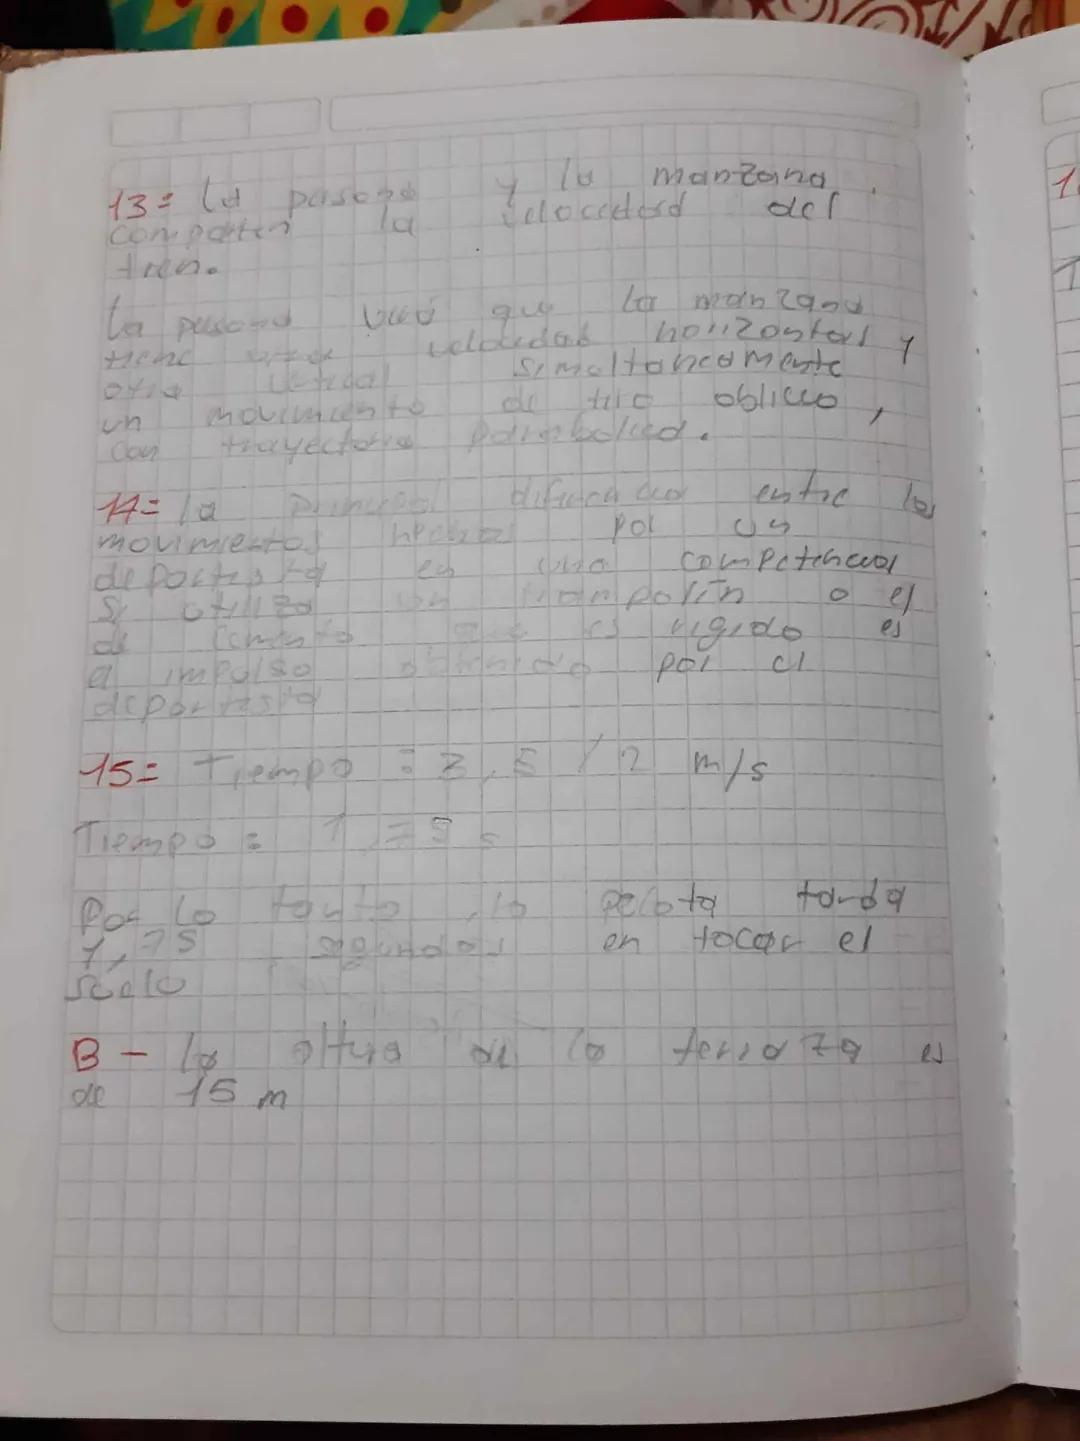 13= La pesona y la manzana
comparten la velocedard del
tren.
La pesona veró que la manzana
tiene una velocidad horizontarl y
otra vertical simoltaneamente
un movimiento de tiro oblicuo,
con trayectoria parabolica.
14= la principal diferencia entre los
movimientos hechos por un
deportista en una competencia
si utiliza un trampolin o el
de cemento que es rigido es
el impulso obtenido por el
deportista
15= Tiempo = 3,5 / 2 m/s
Tiempo = 1 s
Por lo tanto, la pelota tarda
1,75 segundos en tocar el
suelo
B - la altura de la terraza es
de 15 m